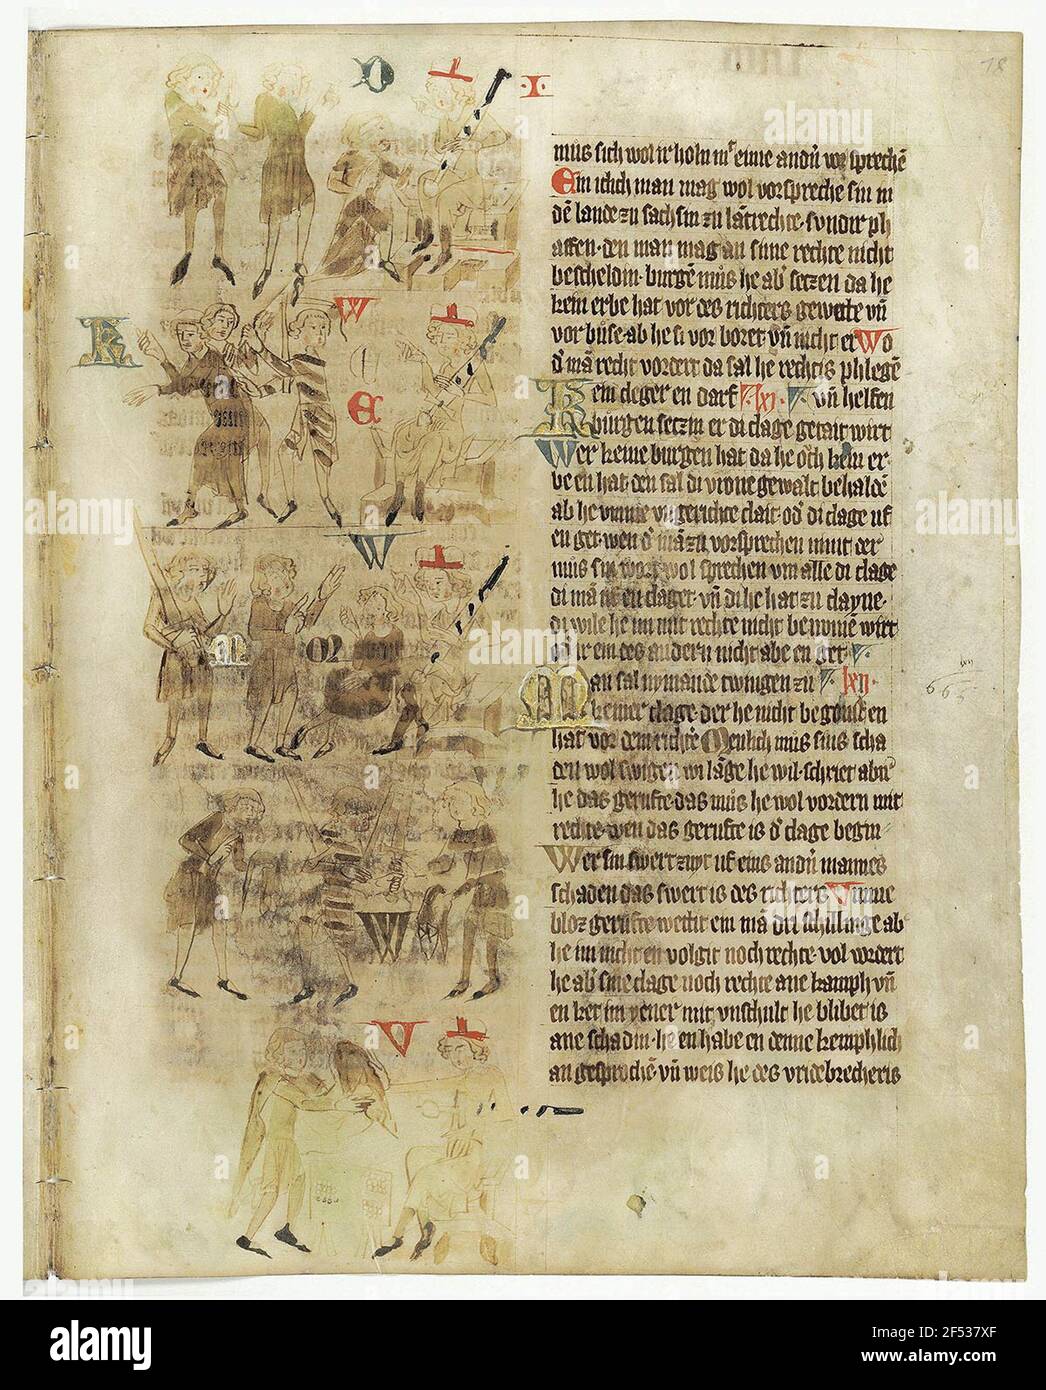 18
O
·I·
mus sich wol ir holn mͬ eime andñ vor sprechē
Ein iclich man mag wol vorspreche sin in
dē lande zu sachsin zu lātrechte· svndir ph
affen· den man mag an sime rechte nicht
bescheldin· burgē mus he abͬ setzen da he
kein erbe hat vor des richters gewette vñ
vor buse· ab he si vor boret vñ nicht er Wo
dͬ mā recht vordert da sal he rechtis phlegē
K em cleger en darf lxi· vñ helfen
burgen setzin er di clage getait wirt
Wer keine burgen hat da he och kein er
be en hat· den sal di vrone gewalt behaldē
ab he vmme vngerichte clait· odͬ di clage uf
en get· wen dͬ mā zu vorsprechen nimt der
mus sin wort wol sprechen vm alle di clage
di mā uf en claget· vñ di he hat zu clayne·
di wile he im mit rechte nicht benomē wirt
ir ein des andern nicht abe en get
M an sal nymande twingen zu lxii·
keiner clage· der he nicht begonsten
hat vor dem richtē Menlich mus sins scha
den wol swigen wi lāge he wil· schriet abͬ
he das gerufte· das mus he wol vordern mit
rechte· wen das gerufte is dͬ clage begin
Wer sin swert zuyt uf eins andñ mannes
schaden das swert is des richters Vmme
bloz gerufte wettit ein mā dri schillinge ab
he im nicht en volgit noch rechte· vol vordert
he abͬ sine clage noch rechte ane kamph vñ
en ket im yener mit vnschult he blibet is
ane schadin· he en habe en denne kemphlich
an gesprochē vñ weis he des vridebrecheris
K
W
E
W
M
M
W
V
665
alamy
Image ID: 2F537XF
www.alamy.com